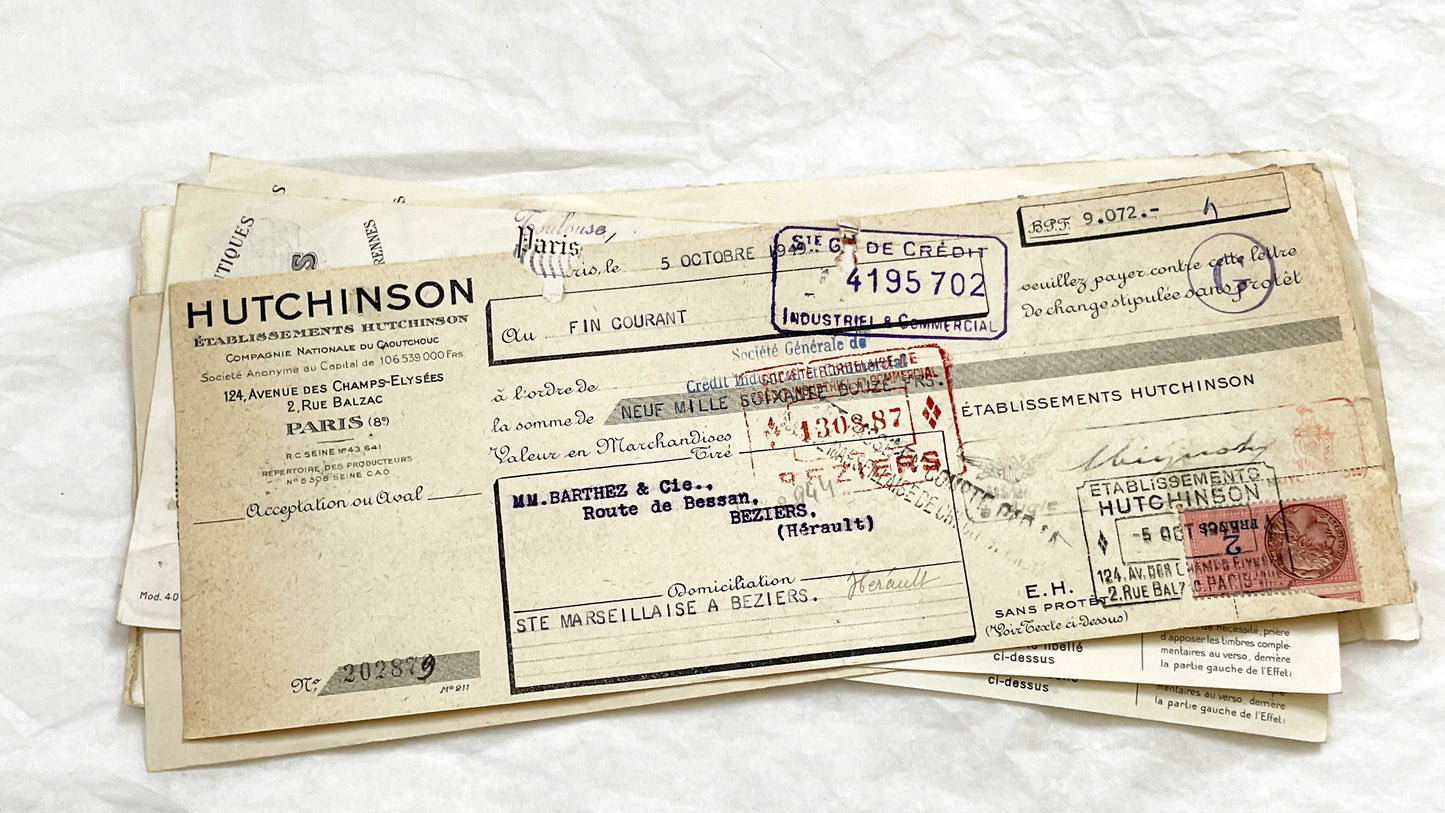 TIQUES
RENNES
Toulouse,
Paris
HUTCHINSON
ÉTABLISSEMENTS HUTCHINSON
COMPAGNIE NATIONALE DU CAOUTCHOUC
Société Anonyme au Capital de 106 539 000 Frs
124, AVENUE DES CHAMPS-ELYSÉES
2, RUE BALZAC
PARIS (8e)
R.C SEINE No 43 641
RÉPERTOIRE DES PRODUCTEURS
No 5306 SEINE C.A.O
Acceptation ou Aval
No 202879
Mo 211
ris, le 5 OCTOBRE 1949
B.P.F. 9.072.-
STE GLE DE CRÉDIT
4195 702
INDUSTRIEL & COMMERCIAL
G
Au FIN COURANT
veuillez payer contre cette lettre
de change stipulée sans protêt
Société Générale de
Crédit Industriel et Commercial
à l'ordre de
la somme de NEUF MILLE SOIXANTE DOUZE FRS.
Valeur en Marchandises
Tiré
SOCIÉTÉ BORDELAISE DE
CRÉDIT INDUSTRIEL & COMMERCIAL
1308.87
BEZIERS
ÉTABLISSEMENTS HUTCHINSON
MM.BARTHEZ & Cie.,
Route de Bessan,
BEZIERS.
(Hérault)
Domiciliation
Hérault
STE MARSEILLAISE A BEZIERS.
ÉTABLISSEMENTS
HUTCHINSON
-5 OCT
124, AV. DES CHAMPS ELYSÉES
2, RUE BALZAC, PARIS
2 FRANCS
E.H.
SANS PROTÊT
(Voir Texte ci-dessus)
Mod. 40
ci-dessus
ci-dessus
de nécessité, prière
d'apposer les timbres complé-
mentaires au verso, derrière
la partie gauche de l'Effet.
mentaires au verso, derrière
la partie gauche de l'Effet.